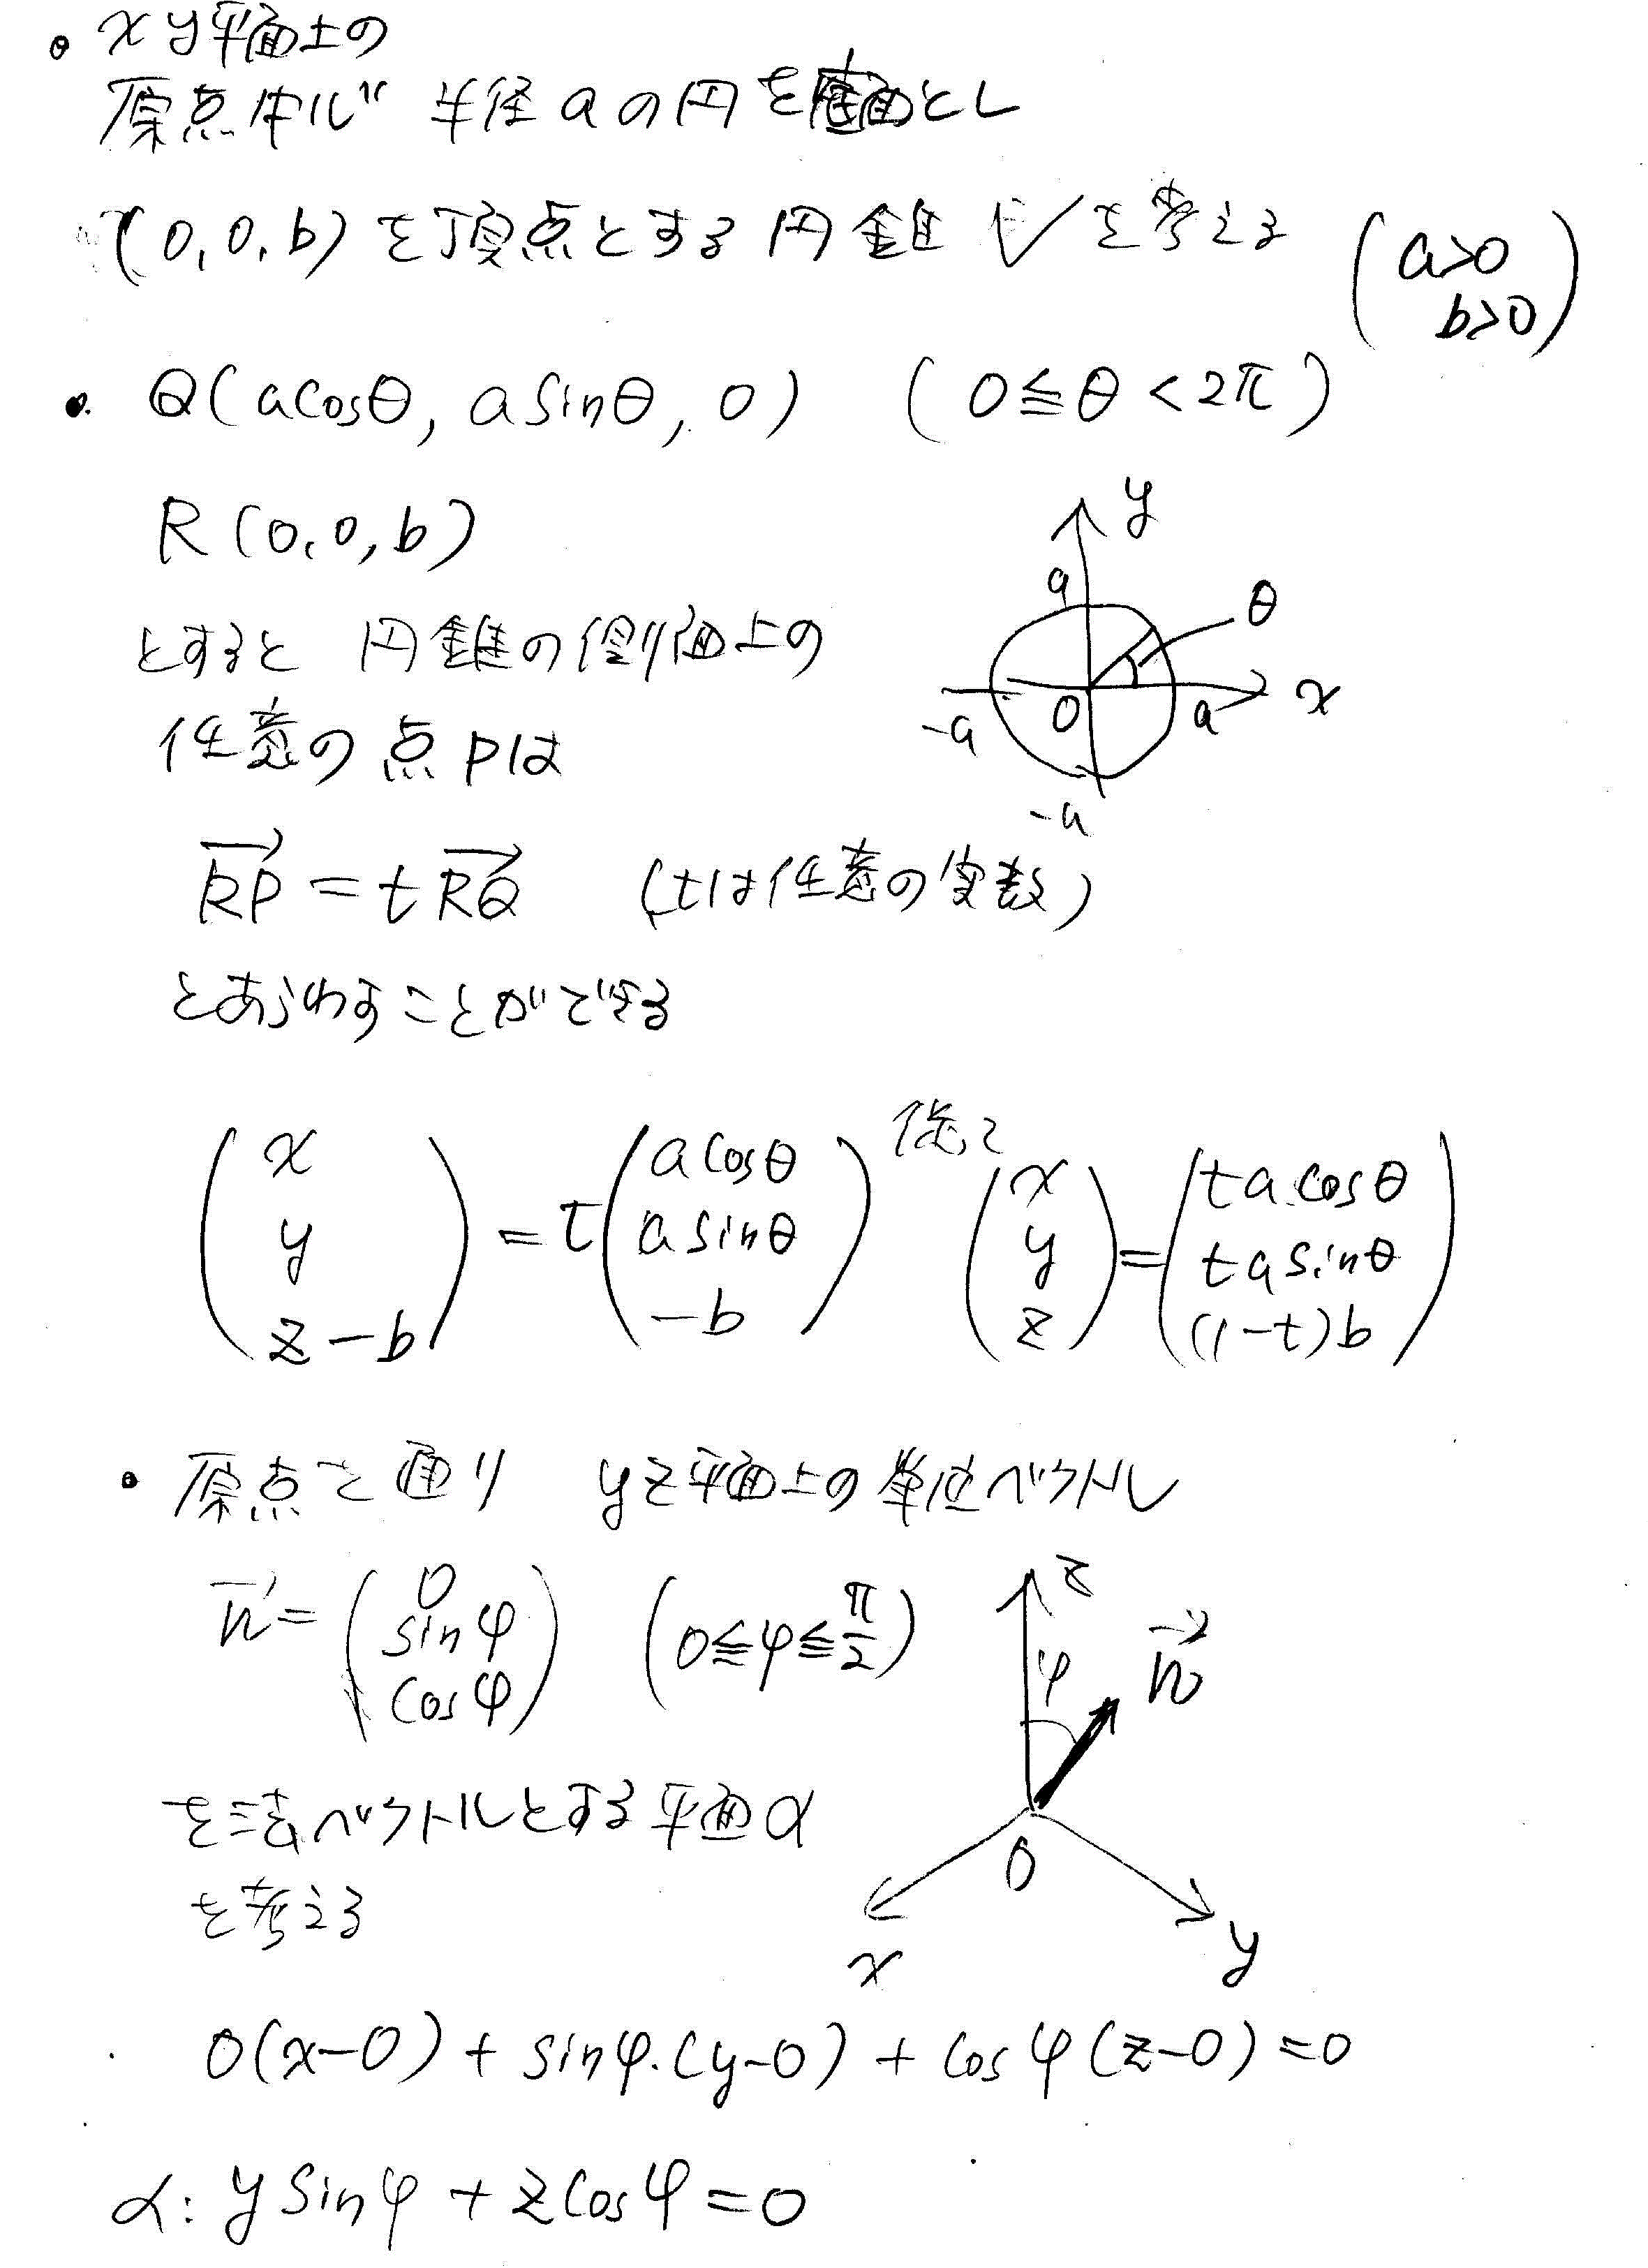 ・xy平面上の
原点中心 半径aの円を底面とし
(0,0,b)を頂点とする円錐Vを考える (a>0 b>0)
・Q(acosθ, asinθ, 0) (0≦θ<2π)
R(0,0,b)
y
a
θ
とすると 円錐の側面上の
-a
O
a
x
任意の点Pは
-a
RP→ = tRQ→ (tは任意の実数)
とあらわすことができる
(x, y, z-b) = t(acosθ, asinθ, -b) 従って (x, y, z) = (tacosθ, tasinθ, (1-t)b)
・原点を通り yz平面上の単位ベクトル
n→ = (0, sinφ, cosφ) (0≦φ≦π/2)
z
φ
n→
を法ベクトルとする平面α
を考える
O
x
y
0(x-0) + sinφ・(y-0) + cosφ(z-0) = 0
α: ysinφ + zcosφ = 0